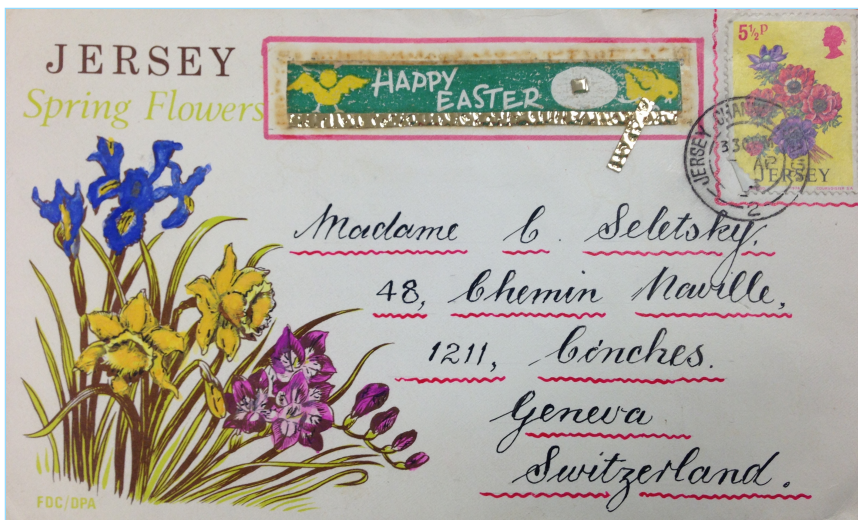 JERSEY
Spring Flowers
HAPPY
EASTER
5½P
JERSEY
JERSEY CHANNEL
3 30
AP
2
Madame C. Seletsky.
48, Chemin Naville,
1211, Conches.
Geneva
Switzerland.
FDC/DPA